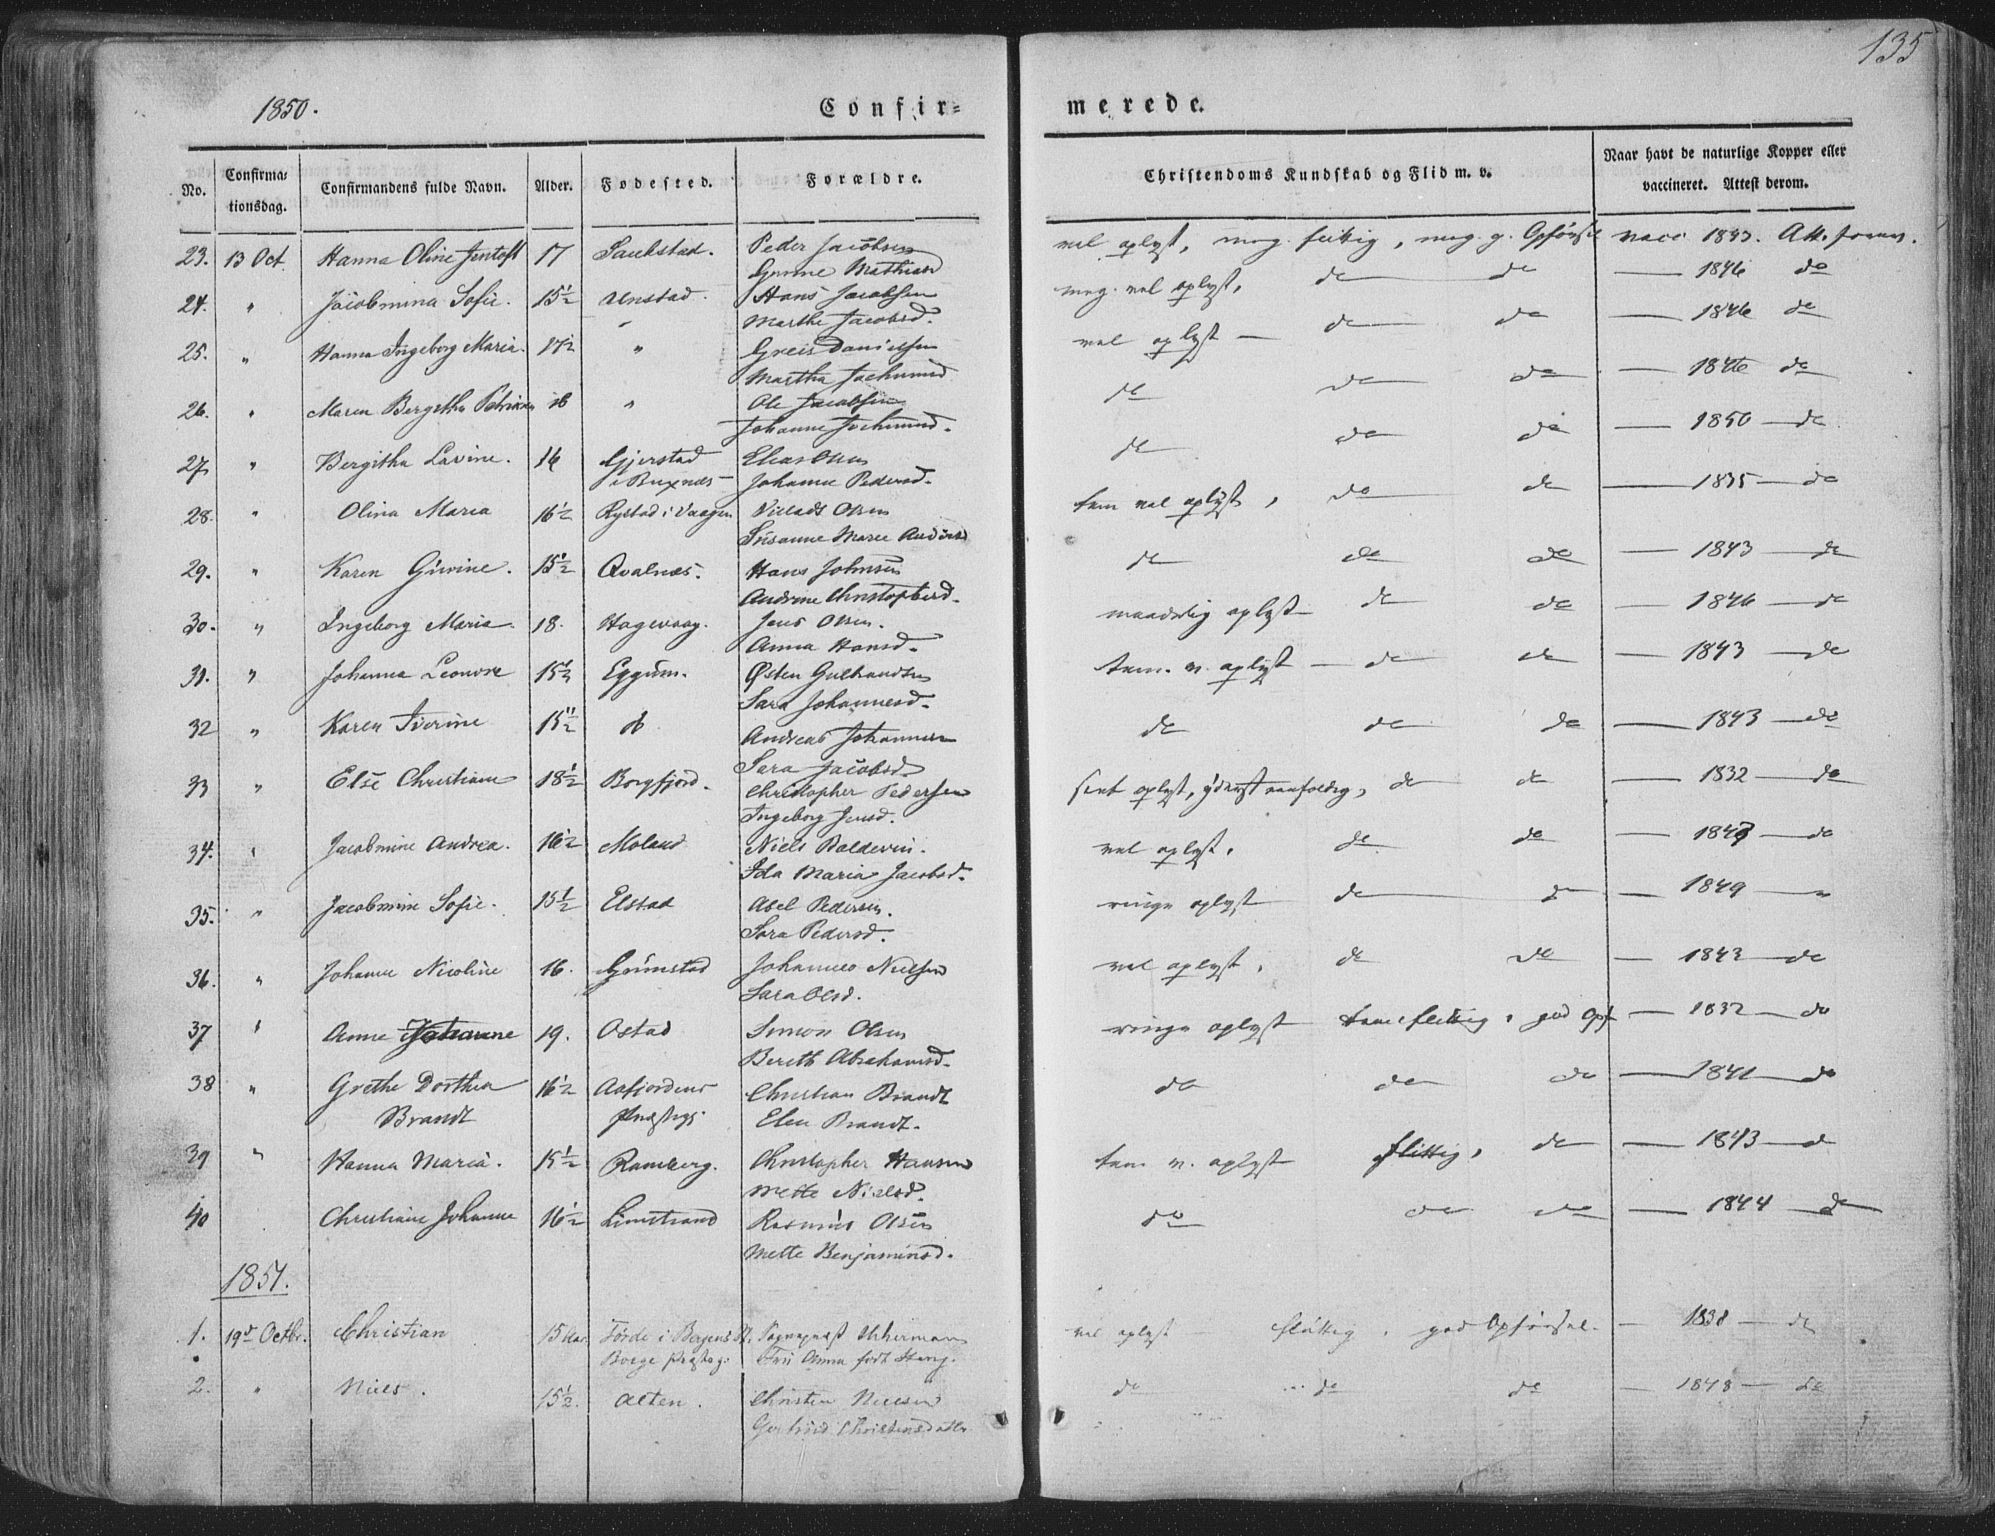 135
1850.
Confir=
merede.
No.
Confirma-
tionsdag.
Confirmandens fulde Navn.
Alder.
Fødested.
Forældre.
Christendoms Kundskab og Flid m. v.
Naar havt de naturlige Kopper eller
vaccineret. Attest derom.
23. 13 Oct. Hanna Oline Jentoft 17 Peder Jacobsen vel oplyst, meg. flittig, meg. g. Opførsel vacc 1833. Att.
Mathiasd
24. " Jacobmina Sofie. 15½ Unstad. Hans Jacobsen meg. vel oplyst, do do — 1846 do
Marthe Jacobsd.
25. " Hanna Ingeborg Maria. 17½ " Greis Danielsen vel oplyst — do do — 1846 do
Martha Jochumsd
26. " Maren Bergitha 16 " Ole Jacobsen do do do — 1846 do
Johanna Jochumsd.
27 " Bergitha Lavine. 16 Gjerstad Elias Olsen do do do — 1850 — do
i Buxnæs Johanne Pedersd.
28. " Olina Maria 16½ Rystad i Vaagen Olsen tem vel oplyst, do do — 1835 — do
Susanne Marie
29. " Karen 15½ Qvalnæs. Hans Johnsen do do do — 1843 — do
Andrine Christophersd.
30. " Ingeborg Maria 18. Hagevaag. Jens Olsen. maadelig oplyst do do — 1846 — do
Anna Hansd.
31. " Johanna Leonore 15½ Eggum. Østen Gulbrandsen tem. v. oplyst — do do — 1843 — do
Sara Johannesd.
32 " Karen Iverine 15½ do Andreas Johannesen do do do — 1843 — do
Sara Jacobsd.
33 " Else Christiane 18½ Borgfjord. Christopher Pedersen slet oplyst, yderst eenfoldig, do do — 1832 — do
Ingeborg Jensd.
34. " Jacobmine Andrea. 16½ Moland Niels Baldevin. vel oplyst. do do — 1843 — do
Ida Maria Jacobsd.
35. " Jacobmine Sofie. 15½ Elstad Abel Pedersen. ringe oplyst do do — 1849 — "
Sara Pedersd.
36. " Johanne Nicoline 16. Grimstad Johannes Nielsen vel oplyst, do do — 1843 — do
Sara Olsd.
37 " Anne Johanne 19. Ostad Simon Olsen ringe oplyst tem. flittig, god Opf — 1832 — do
Bereth Abrahamsd.
38 " Grethe Dorthea 16½ Aafjordens Christian Brandt do do do — 1841 — do
Brandt Præstegj. Elen Brandt.
39 " Hanna Maria. 15½ Ramberg. Christopher Hansen tem. v. oplyst flittig, do — 1843 — do
Mette Nielsd.
40 Christiane Johanne 16½ Limstrand Rasmus Olsen do do do — 1844 — do
Mette Benjaminsd.
1851.
1. 19de Octbr. Christian 15 Aar Førde i Bergens St. Sognepræst vel oplyst — flittig, god Opførsel. — 1838 — do
Borge Præsteg. Fru Anna født
2. " Niels. 15½. Alten. Christen Nielsen do do do — 1848 — do
Gertrud Christensdatter